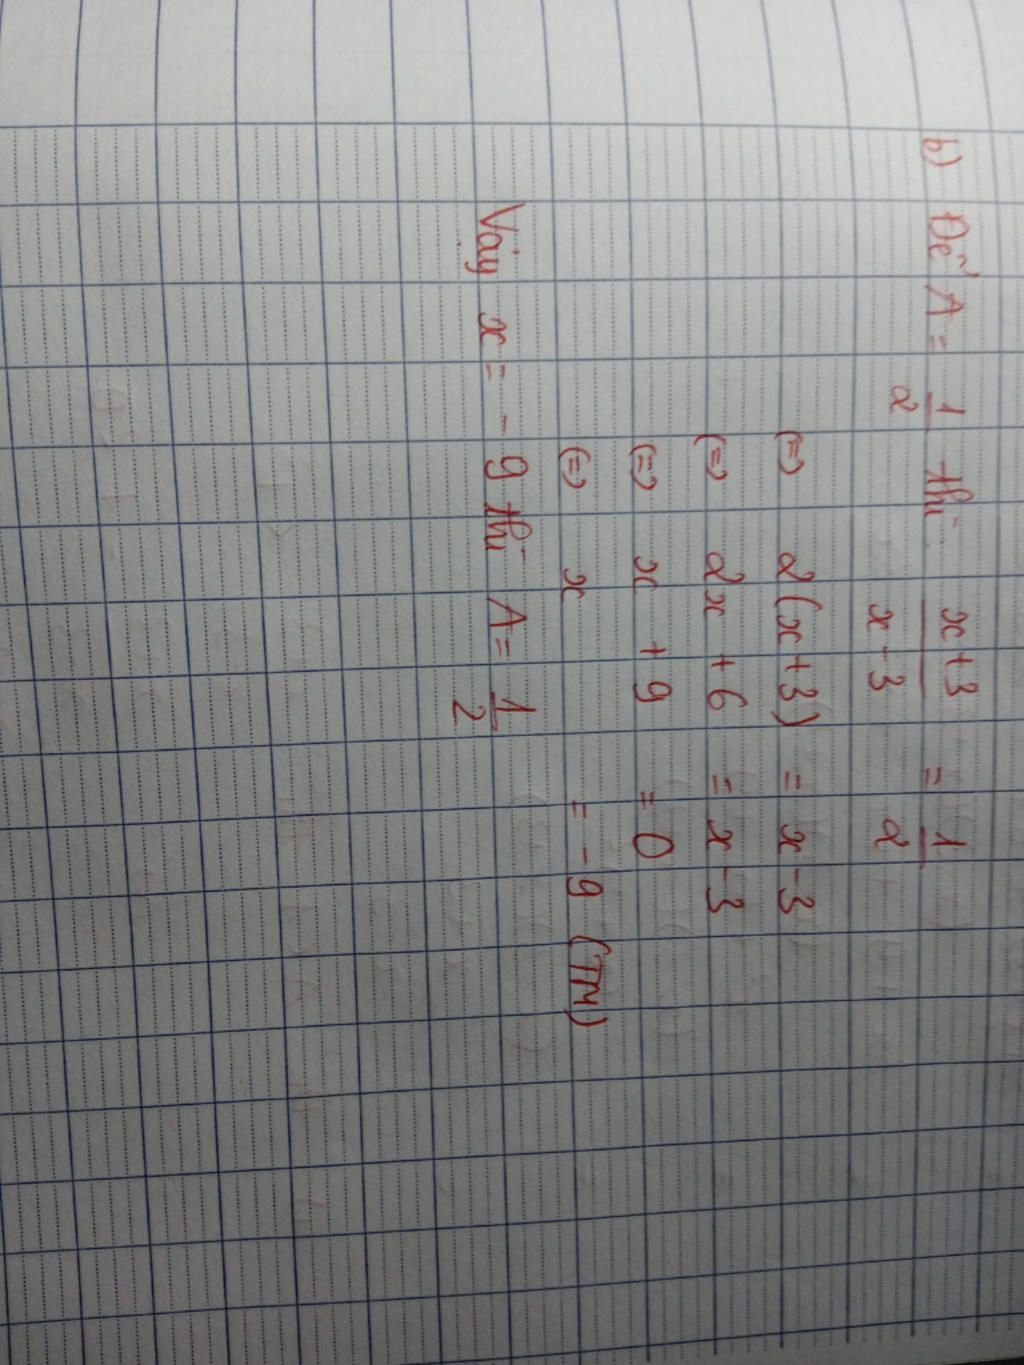 b) Để A = 1/2 thì: x+3/x-3 = 1/2
(=) 2(x+3) = x-3
(=) 2x + 6 = x-3
(=) x + 9 = 0
(=) x = -9 (TM)
Vậy x = -9 thì A = 1/2